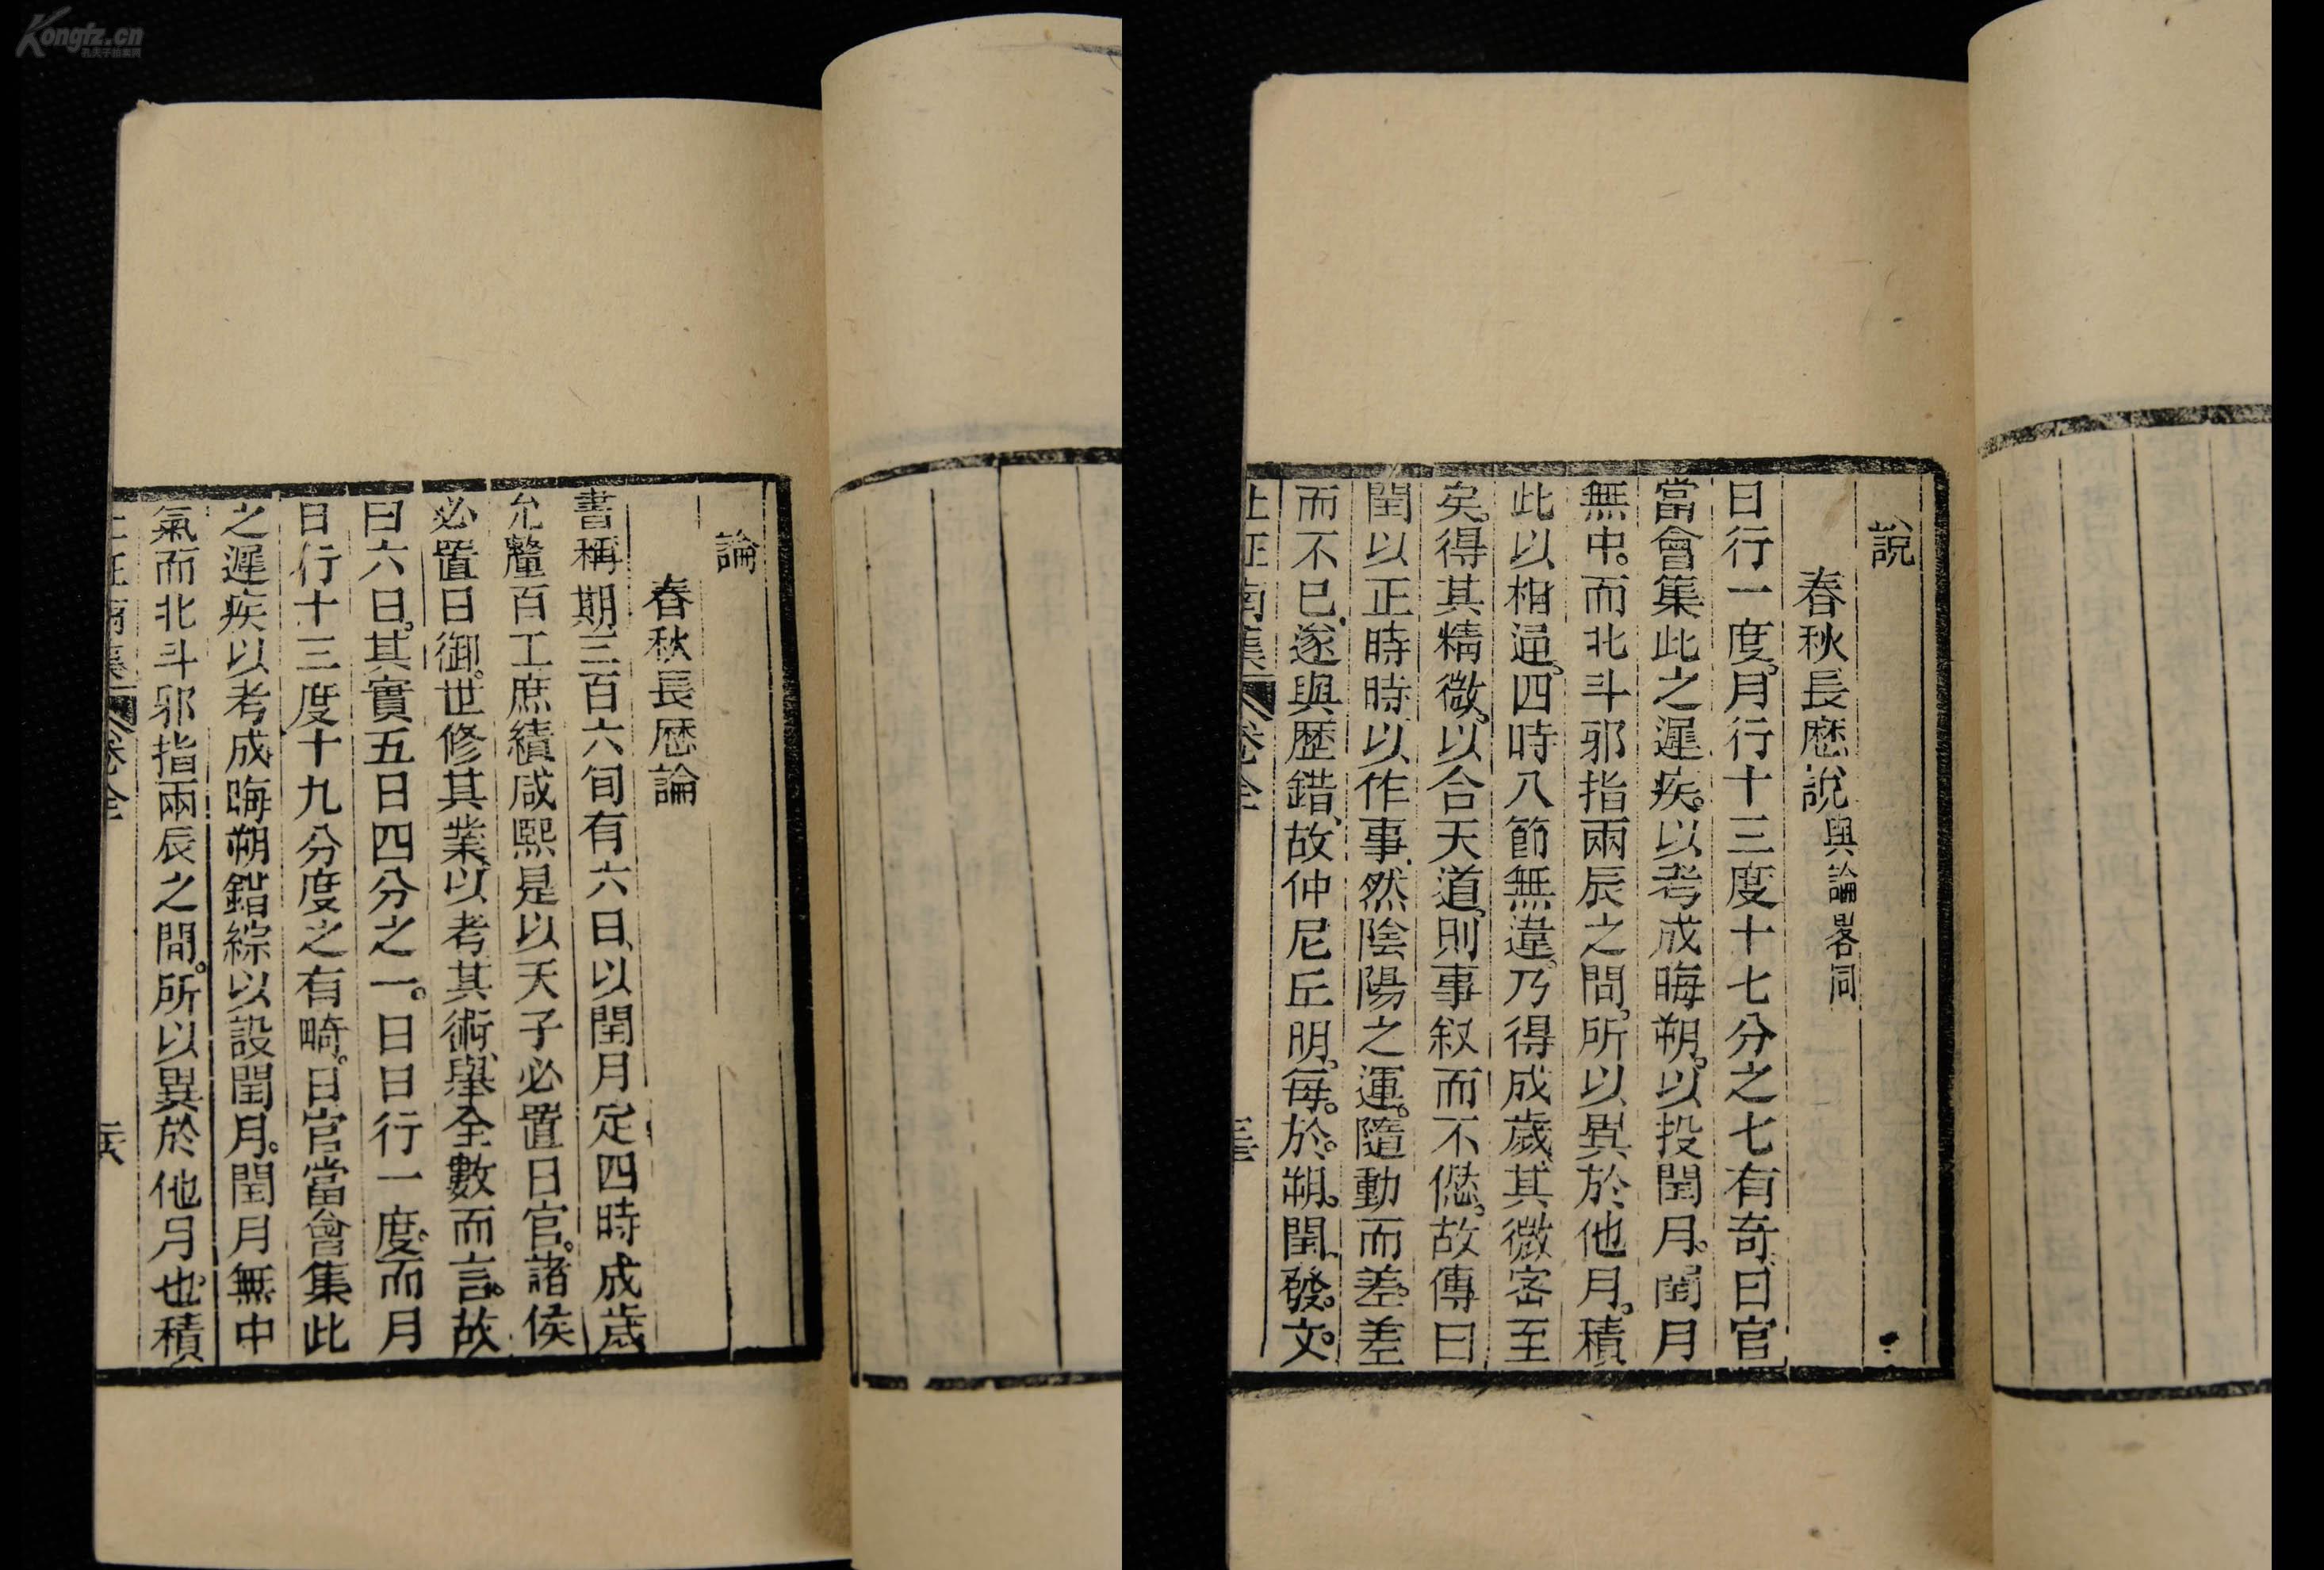 Kongfz.cn
論
春秋長厯論
書稱期三百六旬有六日、以閏月定四時成歲
允釐百工庶績咸熙是以天子必置日官。諸侯
必置日御。世修其業、以考其術、舉全數而言。故
曰六日。其實五日四分之一。日日行一度。而月
日行十三度十九分度之有畸。日官當會集此
之遲疾以考成晦朔錯綜以設閏月。閏月無中
氣而北斗邪指兩辰之間。所以異於他月也。積
說
春秋長厯說與論畧同
日行一度。月行十三度十七分之七有奇、日官
當會集此之遲疾。以考成晦朔。以投閏月。閏月
無中。而北斗邪指兩辰之間。所以異於他月。積
此以相通。四時八節無違。乃得成歲、其微密至
矣。得其精微。以合天道、則事叙而不愆。故傳曰
閏以正時時以作事、然陰陽之運。隨動而差。差
而不已、遂與歷錯、故仲尼丘明、每。於。朔。閏、發。文。
杜征南集 卷全